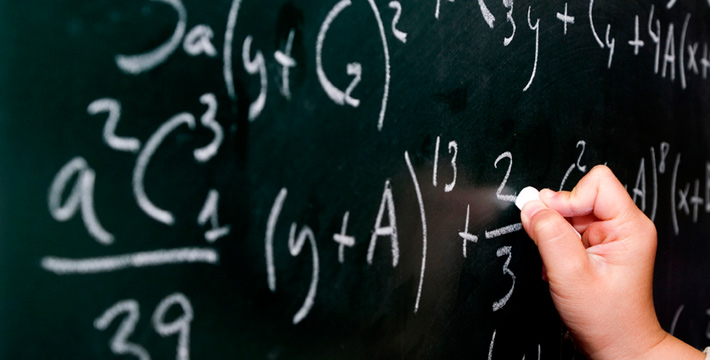 3a(y+C₂)² 3y+(y+4A(x+
a²C₁³/39 (y+A)¹³+2/3 ² A)⁸(x+B